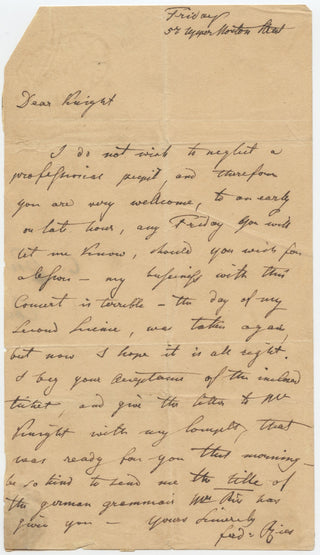 Friday
57 Upper Norton Street
Dear Knight
I do not wish to neglect a
professional pupil, and therefore
you are very wellcome, to an early
or late hour, any Friday you will
let me know, should you wish for
a lesson – my bussiness with this
Concert is terrible – the day of my
was taken again,
but now I hope it is all right.
I beg your acceptance of the inclosed
ticket, and give the letter to Mr
Knight with my Complts, that
was ready for you that morning –
be so kind to send me the title of
the german grammair Mrs Ries has
given you – Yours Sincerely
Ferd: Ries